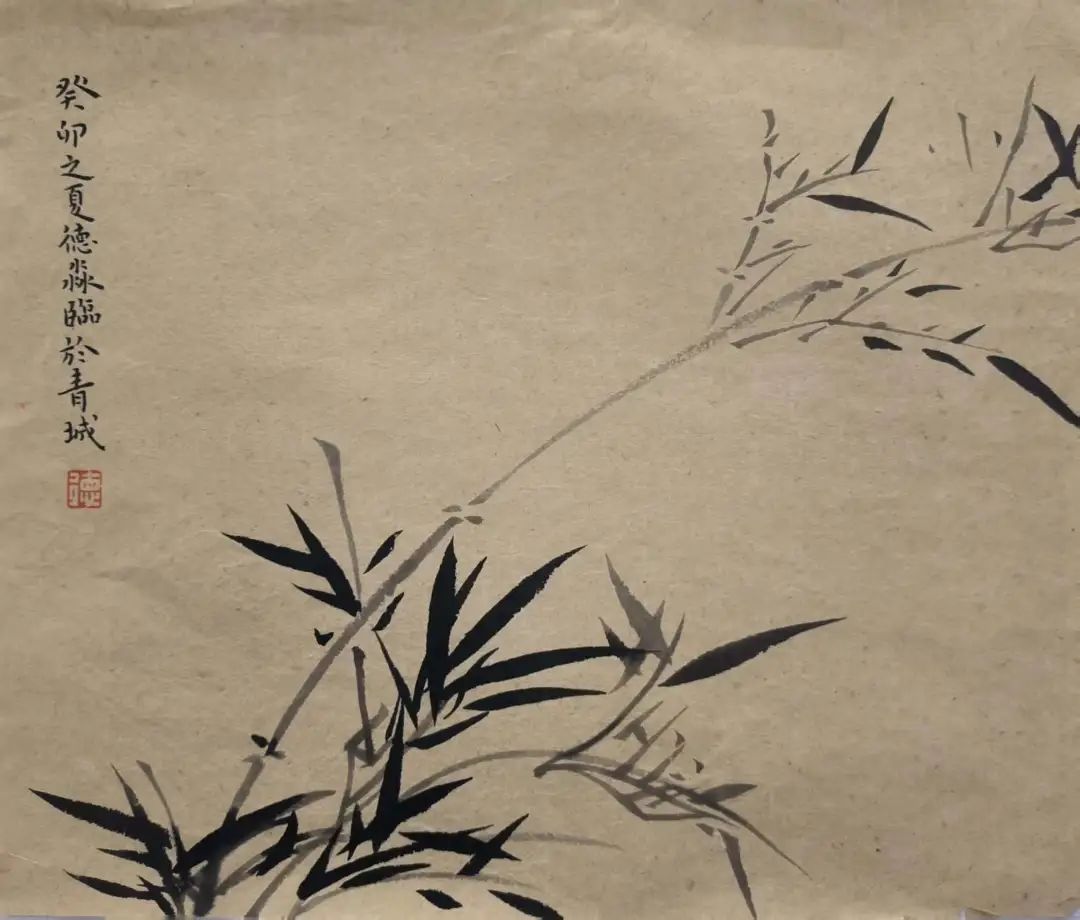 癸卯之夏德淼臨於青城
德